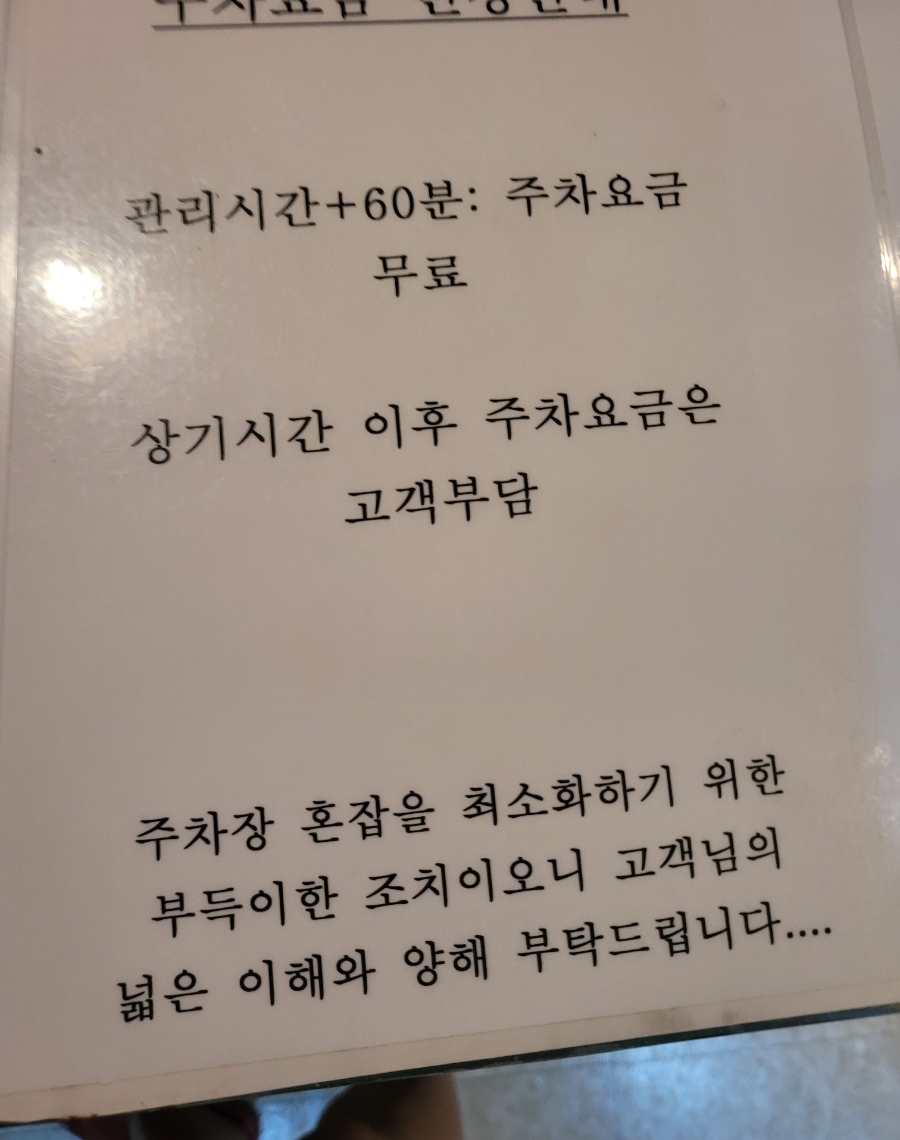 주차요금
관리시간+60분: 주차요금
무료
상기시간 이후 주차요금은
고객부담
주차장 혼잡을 최소화하기 위한
부득이한 조치이오니 고객님의
넓은 이해와 양해 부탁드립니다....